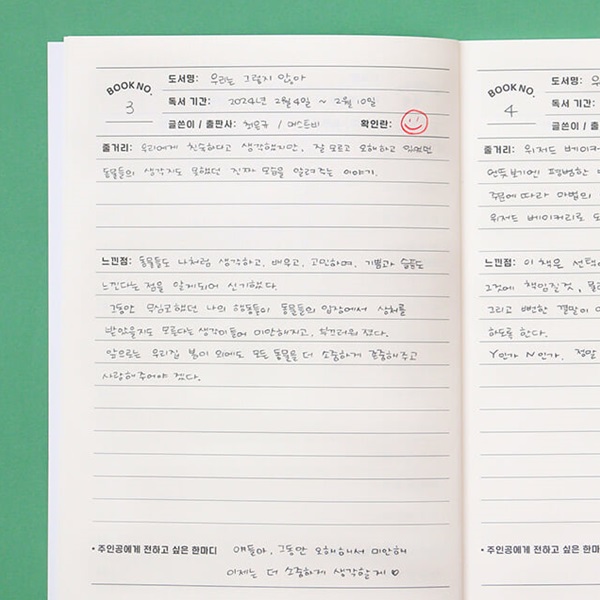 BOOK NO.
3
도서명: 우리는 그렇지 않아
독서 기간: 2024년 2월 4일 ~ 2월 10일
글쓴이 / 출판사: 최을규 / 머스트비 확인란:
줄거리: 우리에게 친숙하다고 생각했지만, 잘 모르고 오해하고 있었던
동물들의 생각지도 못했던 진짜 모습을 알려주는 이야기.
느낀점: 동물들도 나처럼 생각하고, 배우고, 고민하며, 기쁨과 슬픔도
느낀다는 점을 알게되어 신기했다.
그동안 무심코했던 나의 행동들이 동물들의 입장에서 상처를
받았을지도 모른다는 생각이들어 미안해지고, 부끄러워 졌다.
앞으로는 우리집 봄이 외에도 모든 동물을 더 소중하게 존중해주고
사랑해주어야 겠다.
• 주인공에게 전하고 싶은 한마디 얘들아, 그동안 오해해서 미안해
이제는 더 소중하게 생각할게 ♡
BOOK NO.
4
도서명:
독서 기간:
글쓴이 /
줄거리: 위저드 베이커
언뜻보기엔 평범한
주문에 따라 마법의
위저드 베이커리로 도
느낀점: 이 책은 선택
그것에 책임질것,
그리고 뻔한 결말이
하도록 한다.
Y인가 N인가. 정말
• 주인공에게 전하고 싶은 한마